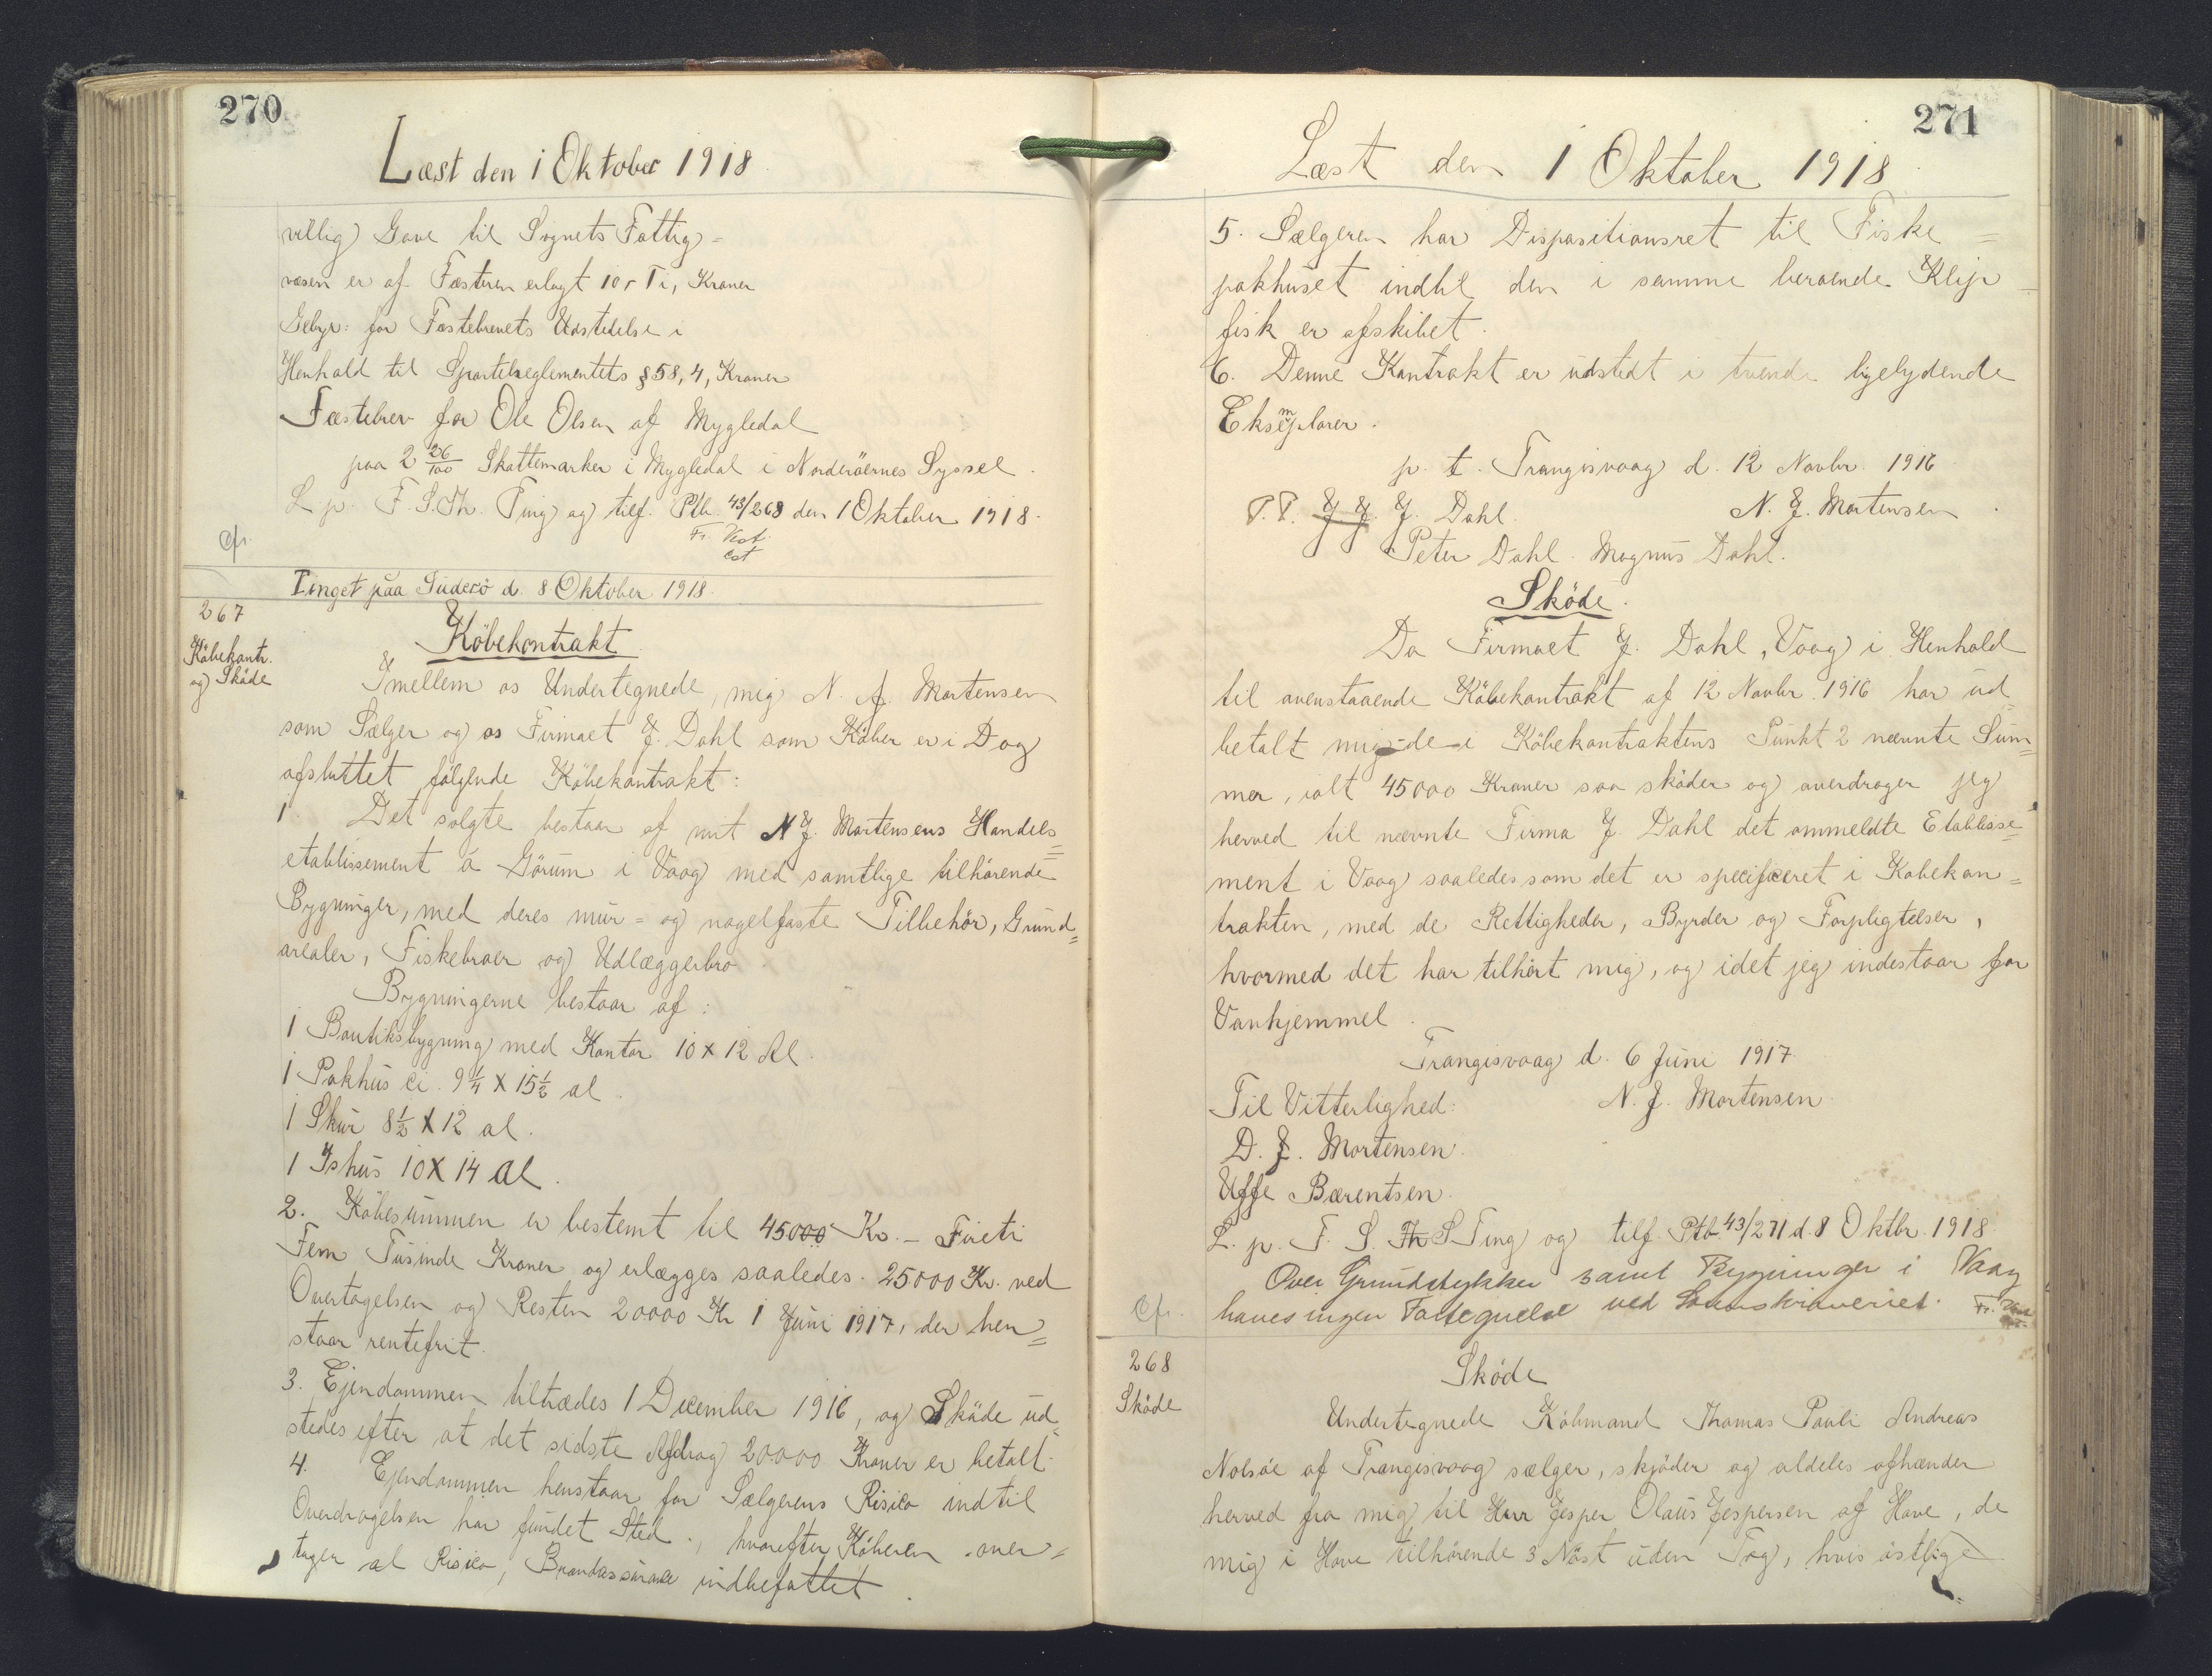 270
Læst den 1 Oktober 1918
villig Gave til Sognets Fattig=
væsen er af Fæsteren erlagt 10,- Ti, Kroner
Gebyr: for Fæstebrevets Udstedelse i
Henhold til Sportelreglementets § 58, 4, Kroner
Fæstebrev for Ole Olsen af Mygledal
paa 2 26/100 Skattemarker i Mygledal i Norderöernes Syssel.
L. p. F. S. Th. Ting og tilf. Ptb. 43/268 den 1 Oktober 1918.
Cfr.
Tinget paa Suderö d. 8 Oktober 1918.
267
Köbekontr.
og Sköde
Köbekontrakt
Imellem os Undertegnede, mig N. J. Mortensen
som Sælger og os Firmaet J. Dahl som Köber er i Dag
afsluttet fölgende Köbekontrakt:
1. Det solgte bestaar af mit N J. Mortensens Handels=
etablissement á Görum i Vaag med samtlige tilhörende
Bygninger, med deres mur= og nagelfaste Tilbehör, Grund=
arealer, Fiskebroer og Udlæggerbro.
Bygningerne bestaar af:
1 Boutiksbygning med Kontor 10 x 12 Al.
1 Pakhus ci. 9 1/4 x 15 1/2 al.
1 Skur 8 1/2 x 12 al.
1 Ishus 10 x 14 Al.
2. Köbesummen er bestemt til 45000 Kr. - Firti
Fem Tusinde Kroner og erlægges saaledes. 25000 Kr. ved
Overtagelsen og Resten 20000 Kr 1 Juni 1917, der hen=
staar rentefrit.
3. Ejendommen tiltrædes 1 December 1916, og Sköde ud=
stedes efter at det sidste Afdrag 20000 Kroner er betalt.
4. Ejendommen henstaar for Sælgerens Risico indtil
Overdragelsen har fundet Sted., hvorefter Köberen over=
tager al Risico, Brandassurance indbefattet.
271
Læst den 1 Oktober 1918.
5. Sælgeren har Dispositionsret til Fiske=
pakhuset indtil den i samme beroende Klip=
fisk er afskibet.
6. Denne Kontrakt er udstedt i tvende ligelydende
Eksemplarer.
p. t. Trangisvaag d. 12 Novbr. 1916
P.P. J. J. J. Dahl. N. J. Mortensen
Peter Dahl. Magnus Dahl.
Sköde.
Da Firmaet J. Dahl, Vaag i Henhold
til ovenstaaende Köbekontrakt af 12 Novbr. 1916 har ud=
betalt mig de i Köbekontraktens Punkt 2 nævnte Sum=
mer, ialt 45000 Kroner saa sköder og overdrager jeg
herved til nævnte Firma J. Dahl det ommeldte Etablisse=
ment i Vaag saaledes som det er specificeret i Köbekon=
trakten, med de Rettigheder, Byrder og Forpligtelser,
hvormed det har tilhört mig, og idet jeg indestaar for
Vanhjemmel.
Trangisvaag d. 6 Juni 1917.
Til Vitterlighed: N. J. Mortensen
D. J. Mortensen.
Uffe Bærentsen.
L. p. F. S. Th S Ting og tilf. Ptb. 43/271 d. 8 Oktbr. 1918
Over Grundstykker samt Bygninger i Vaag
haves ingen Fortegnelse ved Sorenskriveriet.
Cfr.
268
Sköde
Sköde
Undertegnede Köbmand Thomas Pauli Andreas
Nolsöe af Trangisvaag sælger, skjöder og aldeles afhænder
herved fra mig til Herr Jesper Olaus Jespersen af Hove, de
mig i Hove tilhörende 3 Nöst uden Tag, hvis östlige